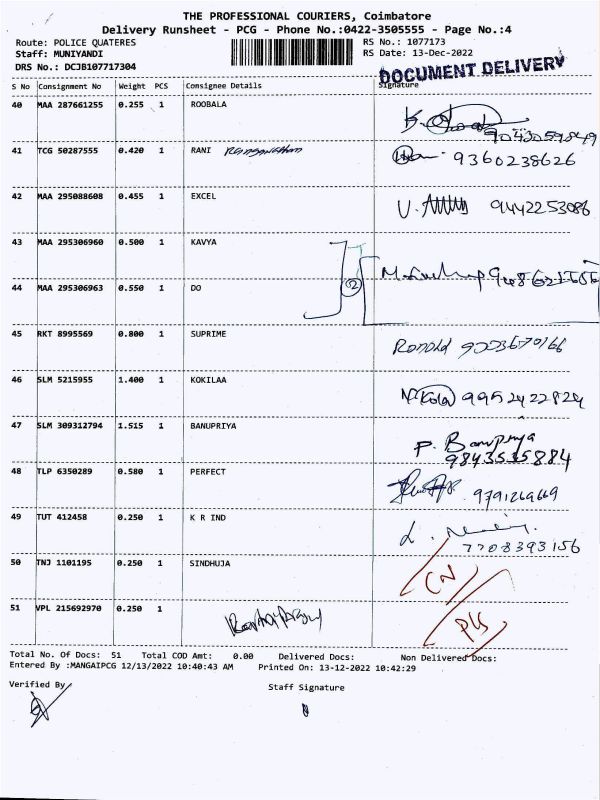 THE PROFESSIONAL COURIERS, Coimbatore
Delivery Runsheet - PCG - Phone No.:0422-3505555 - Page No.:4
Route: POLICE QUATERES RS No.: 1077173
Staff: MUNIYANDI RS Date: 13-Dec-2022
DRS No.: DCJB107717304
DOCUMENT DELIVERY
S No Consignment No Weight PCS Consignee Details Signature
40 MAA 287661255 0.255 1 ROOBALA
41 TCG 50287555 0.420 1 RANI 9360238626
42 MAA 295088608 0.455 1 EXCEL 9442253086
43 MAA 295306960 0.500 1 KAVYA
44 MAA 295306963 0.550 1 DO
45 RKT 8995569 0.800 1 SUPRIME Ronold
46 SLM 5215955 1.400 1 KOKILAA
47 SLM 309312794 1.515 1 BANUPRIYA P. Banupriya
9843535884
48 TLP 6350289 0.580 1 PERFECT
49 TUT 412458 0.250 1 K R IND
7708393156
50 TNJ 1101195 0.250 1 SINDHUJA CN
51 VPL 215692970 0.250 1
Total No. Of Docs: 51 Total COD Amt: 0.00 Delivered Docs: Non Delivered Docs:
Entered By :MANGAIPCG 12/13/2022 10:40:43 AM Printed On: 13-12-2022 10:42:29
Verified By Staff Signature